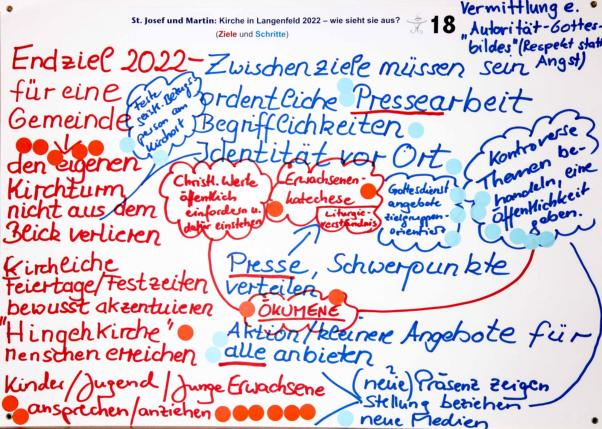 St. Josef und Martin: Kirche in Langenfeld 2022 – wie sieht sie aus?
(Ziele und Schritte)
18
Vermittlung e.
"Autorität-Gottes-
bildes" (Respekt statt
Angst)
Endziel 2022-
für eine
Gemeinde
den eigenen
Kirchturm
nicht aus dem
Blick verlieren
Kirchliche
Feiertage/Festzeiten
bewusst akzentuieren
"Hingehkirche"
Menschen erreichen
Kinder/Jugend/Junge Erwachsene
ansprechen/anziehen
Zwischenziele müssen sein
ordentliche Pressearbeit
Begrifflichkeiten
Identität vor Ort
Feste
seels. Bezugs-
person am
Kirchort
Christl. Werte
öffentlich
einfordern u.
dafür einstehen
Erwachsenen-
katechese
Liturgie-
verständnis
Gottesdienst
angebote
zielgruppen-
orientiert
Kontroverse
Themen be-
handeln, eine
Öffentlichkeit
geben.
Presse, Schwerpunkte
verteilen
ÖKUMENE
Aktion/kleinere Angebote für
alle anbieten
(neue) Präsenz zeigen
Stellung beziehen
neue Medien